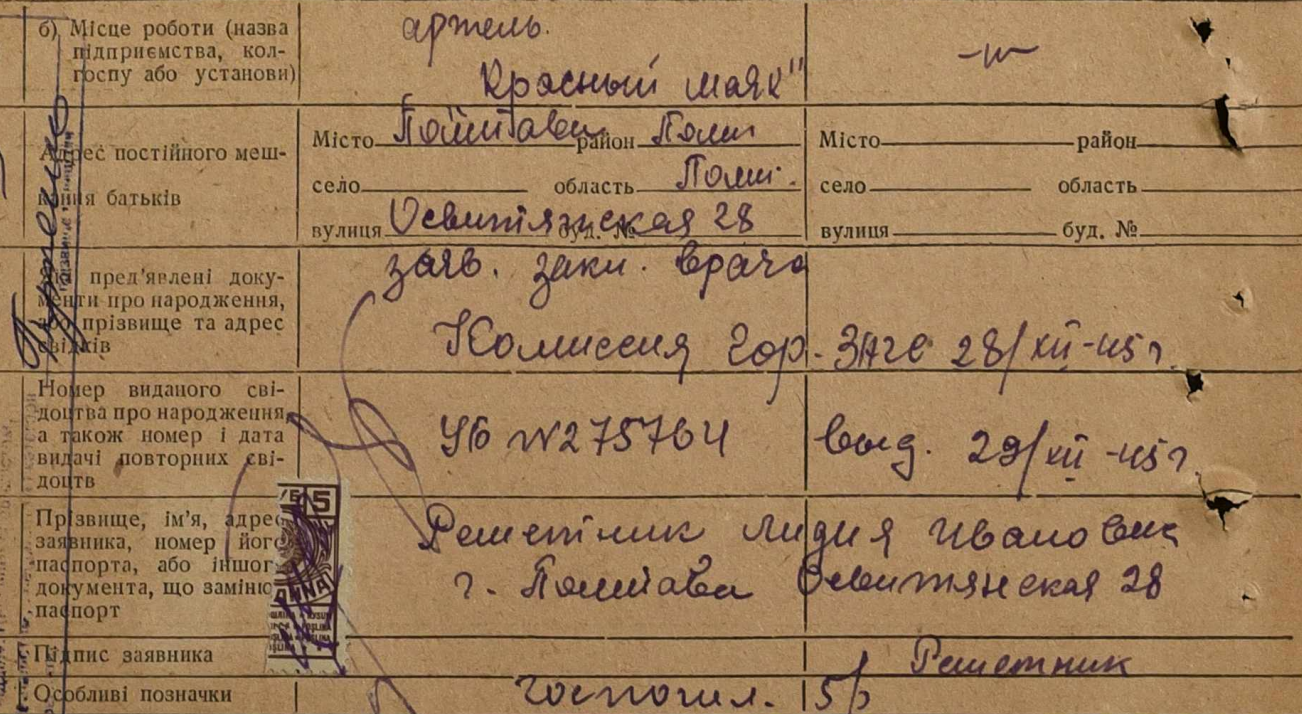 б) Місце роботи (назва
підприємства, кол-
госпу або установи)
артель.
Красный маяк"
Адрес постійного меш-
кання батьків
Місто Полтава район Полт
село область Полт.
вулиця Освитянская 28 буд. №
Місто район
село область
вулиця буд. №
пред'явлені доку-
менти про народження,
або прізвище та адрес
свідків
заяв. закл. врача
Комиссия Гор. ЗАГС 28/XII-45 г.
Номер виданого сві-
доцтва про народження
а також номер і дата
видачі повторних сві-
доцтв
УБ №275764 выд. 29/XII-45 г.
Прізвище, ім'я, адрес
заявника, номер його
паспорта, або іншог
документа, що заміню
паспорт
5
Решетник Лидия Ивановна
г. Полтава Освитянская 28
Підпис заявника
Решетник
Особливі позначки
госпошл. 5р